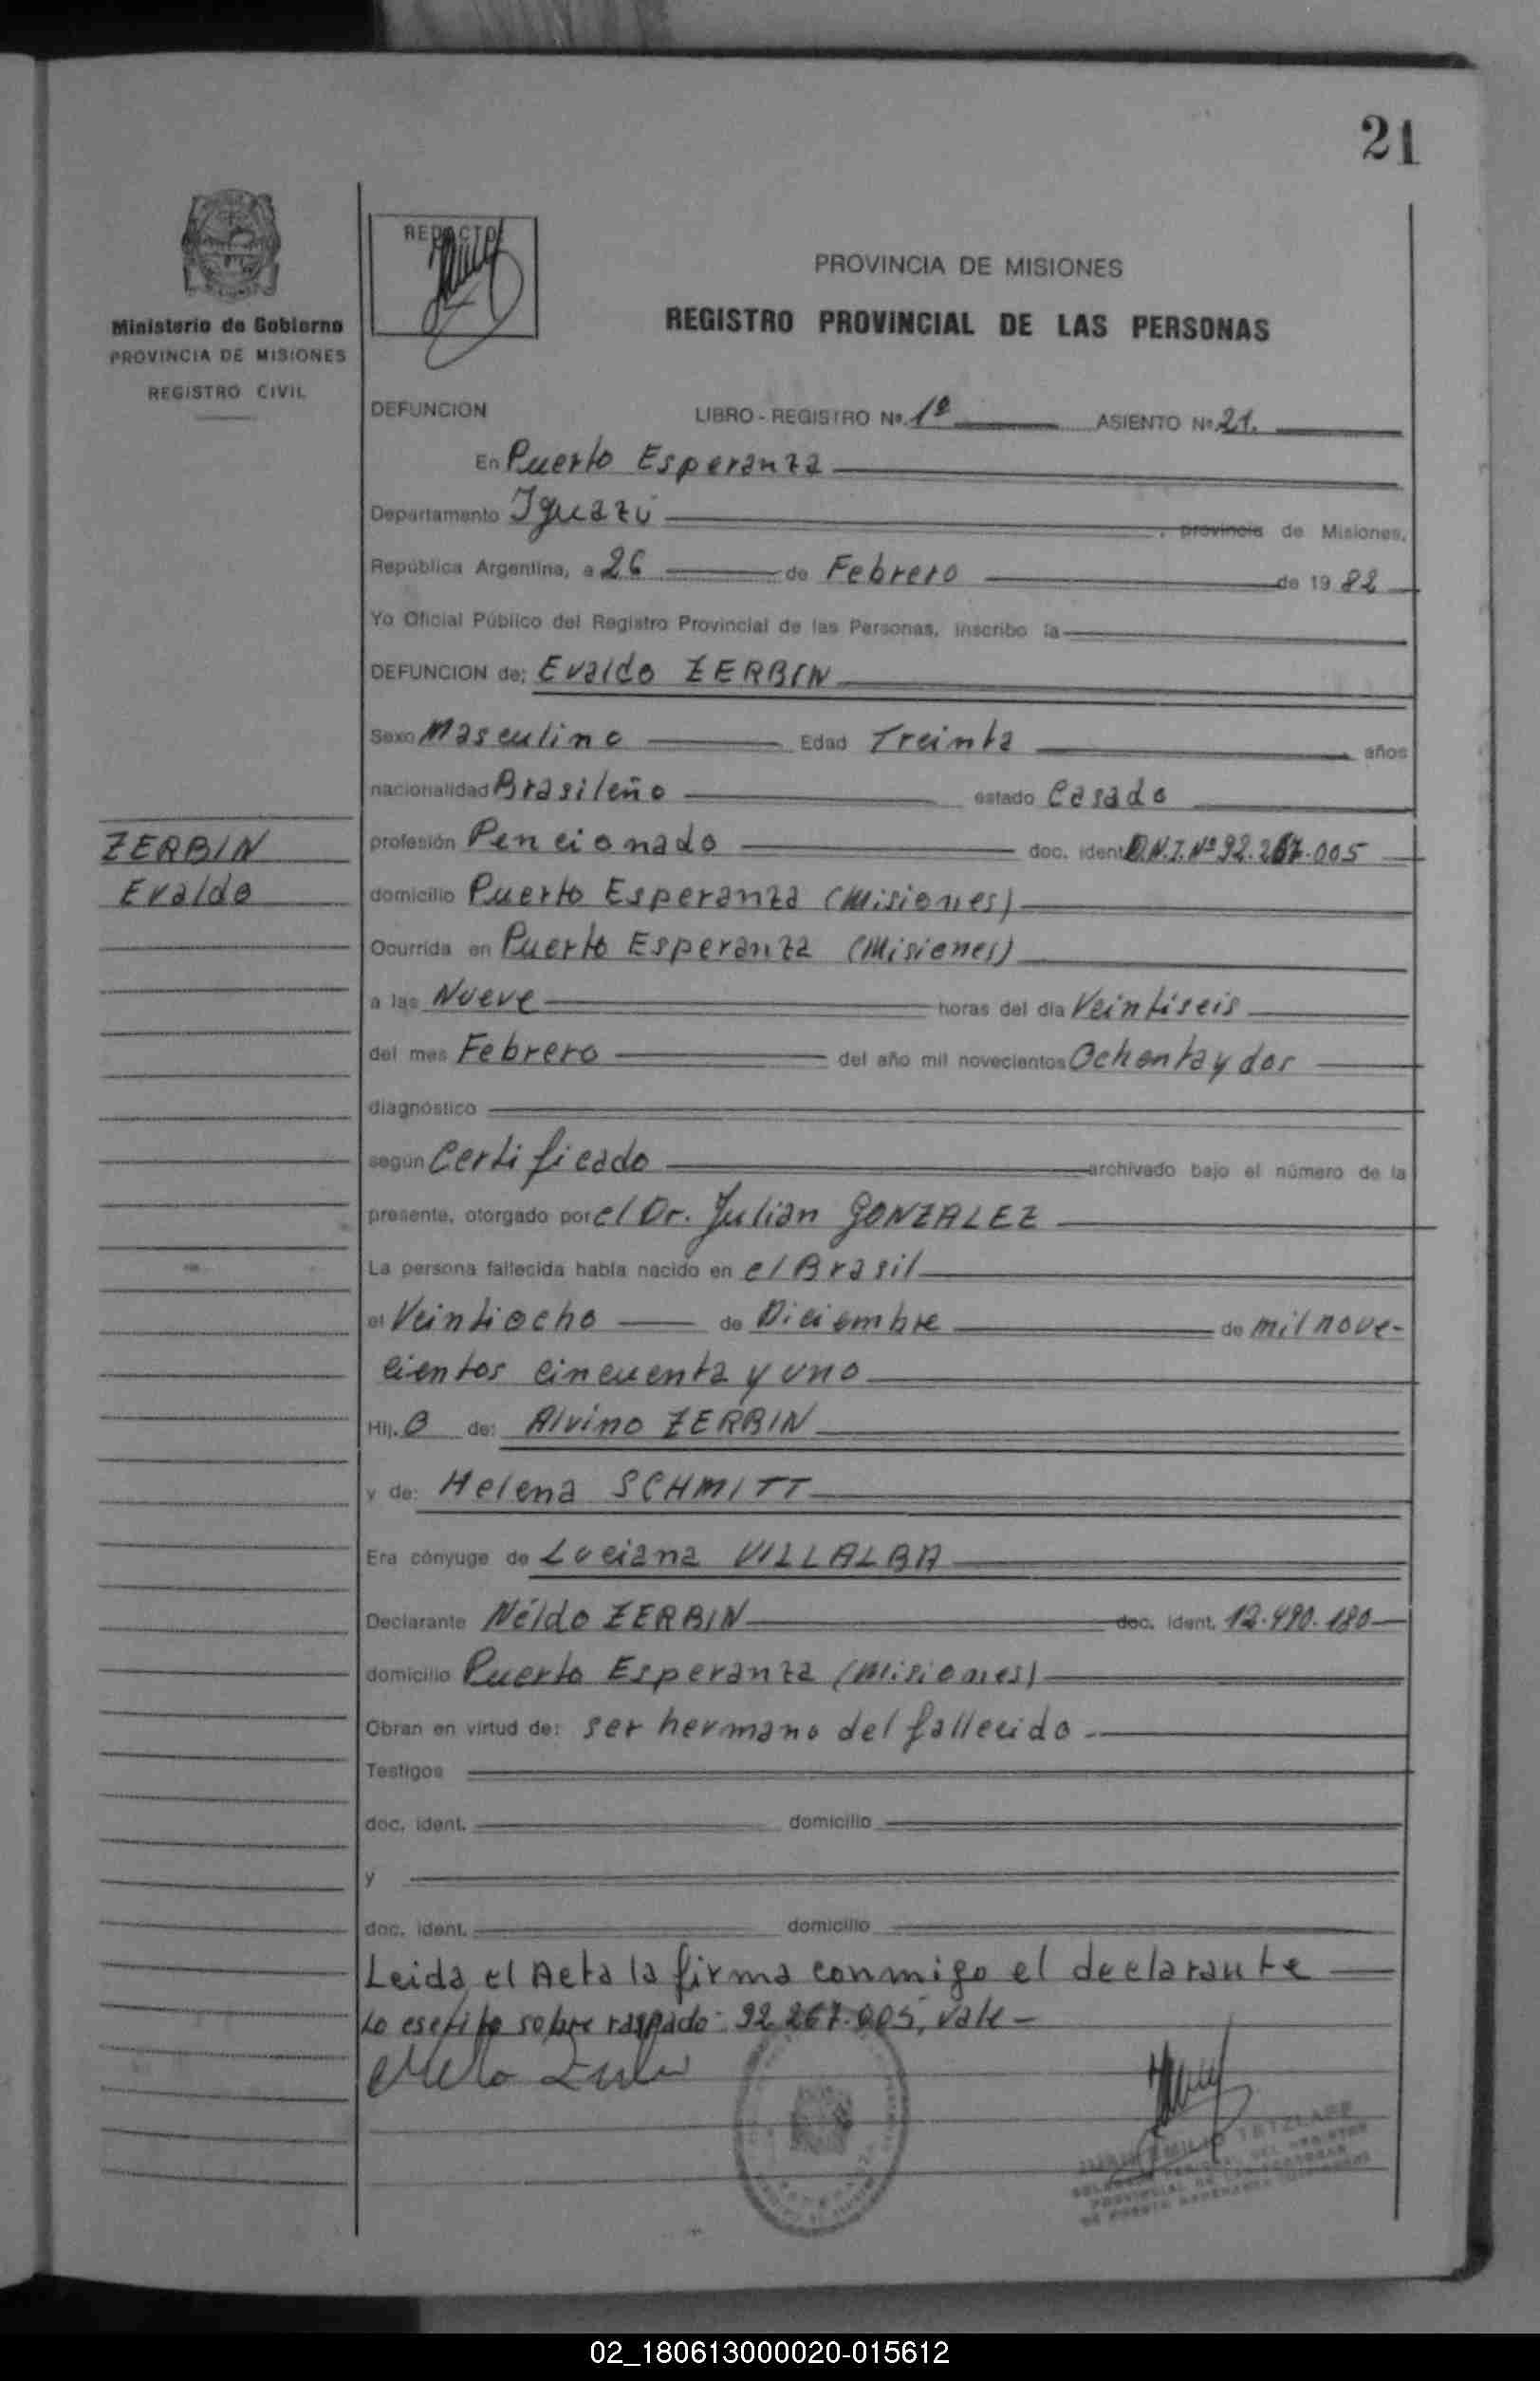 21
REDACTO
PROVINCIA DE MISIONES
REGISTRO PROVINCIAL DE LAS PERSONAS
Ministerio de Gobierno
PROVINCIA DE MISIONES
REGISTRO CIVIL
DEFUNCION LIBRO - REGISTRO Nº. 1º ASIENTO Nº 21.
En Puerto Esperanza
Departamento Iguazú , provincia de Misiones,
República Argentina, a 26 de Febrero de 19 82
Yo Oficial Público del Registro Provincial de las Personas, inscribo la
DEFUNCION de; Evaldo ZERBIN
Sexo Masculino Edad Treinta años
nacionalidad Brasileño estado Casado
ZERBIN
Evaldo
profesión Pencionado doc. ident D.N.I. Nº 92.267.005
domicilio Puerto Esperanza (Misiones)
Ocurrida en Puerto Esperanza (Misiones)
a las Nueve horas del día Veintiseis
del mes Febrero del año mil novecientos Ochenta y dos
diagnóstico
según Certificado archivado bajo el número de la
presente, otorgado por el Dr. Julian GONZALEZ
La persona fallecida había nacido en el Brasil
el Veintiocho de Diciembre de mil nove-
cientos cincuenta y uno
Hij. o de: Alvino ZERBIN
y de: Helena SCHMITT
Era cónyuge de Luciana VILLALBA
Declarante Néldo ZERBIN doc. ident. 12.490.180
domicilio Puerto Esperanza (Misiones)
Obran en virtud de: ser hermano del fallecido
Testigos
doc. ident. domicilio
y
doc. ident. domicilio
Leida el Acta la firma conmigo el declarante
Lo escrito sobre raspado: 92.267.005, vale -
PROVINCIAL DE LAS PERSONAS
DE PUERTO ESPERANZA
02_180613000020-015612